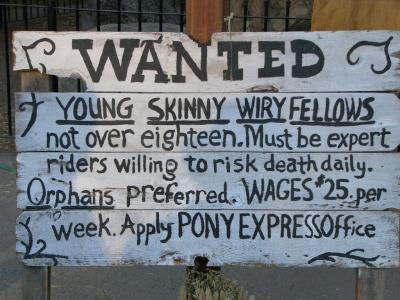 WANTED
YOUNG SKINNY WIRY FELLOWS
not over eighteen. Must be expert
riders willing to risk death daily.
Orphans preferred. WAGES $25. per
week. Apply PONY EXPRESS Office